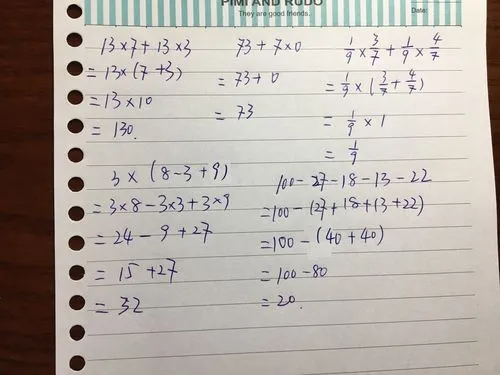 PIMI AND RUDO
They are good friends.
Date:
13×7+13×3
=13×(7+3)
=13×10
=130.
73+7×0
=73+0
=73
1/9×3/7+1/9×4/7
=1/9×(3/7+4/7)
=1/9×1
=1/9
3×(8-3+9)
=3×8-3×3+3×9
=24-9+27
=15+27
=32
100-27-18-13-22
=100-(27+18+13+22)
=100-(40+40)
=100-80
=20.